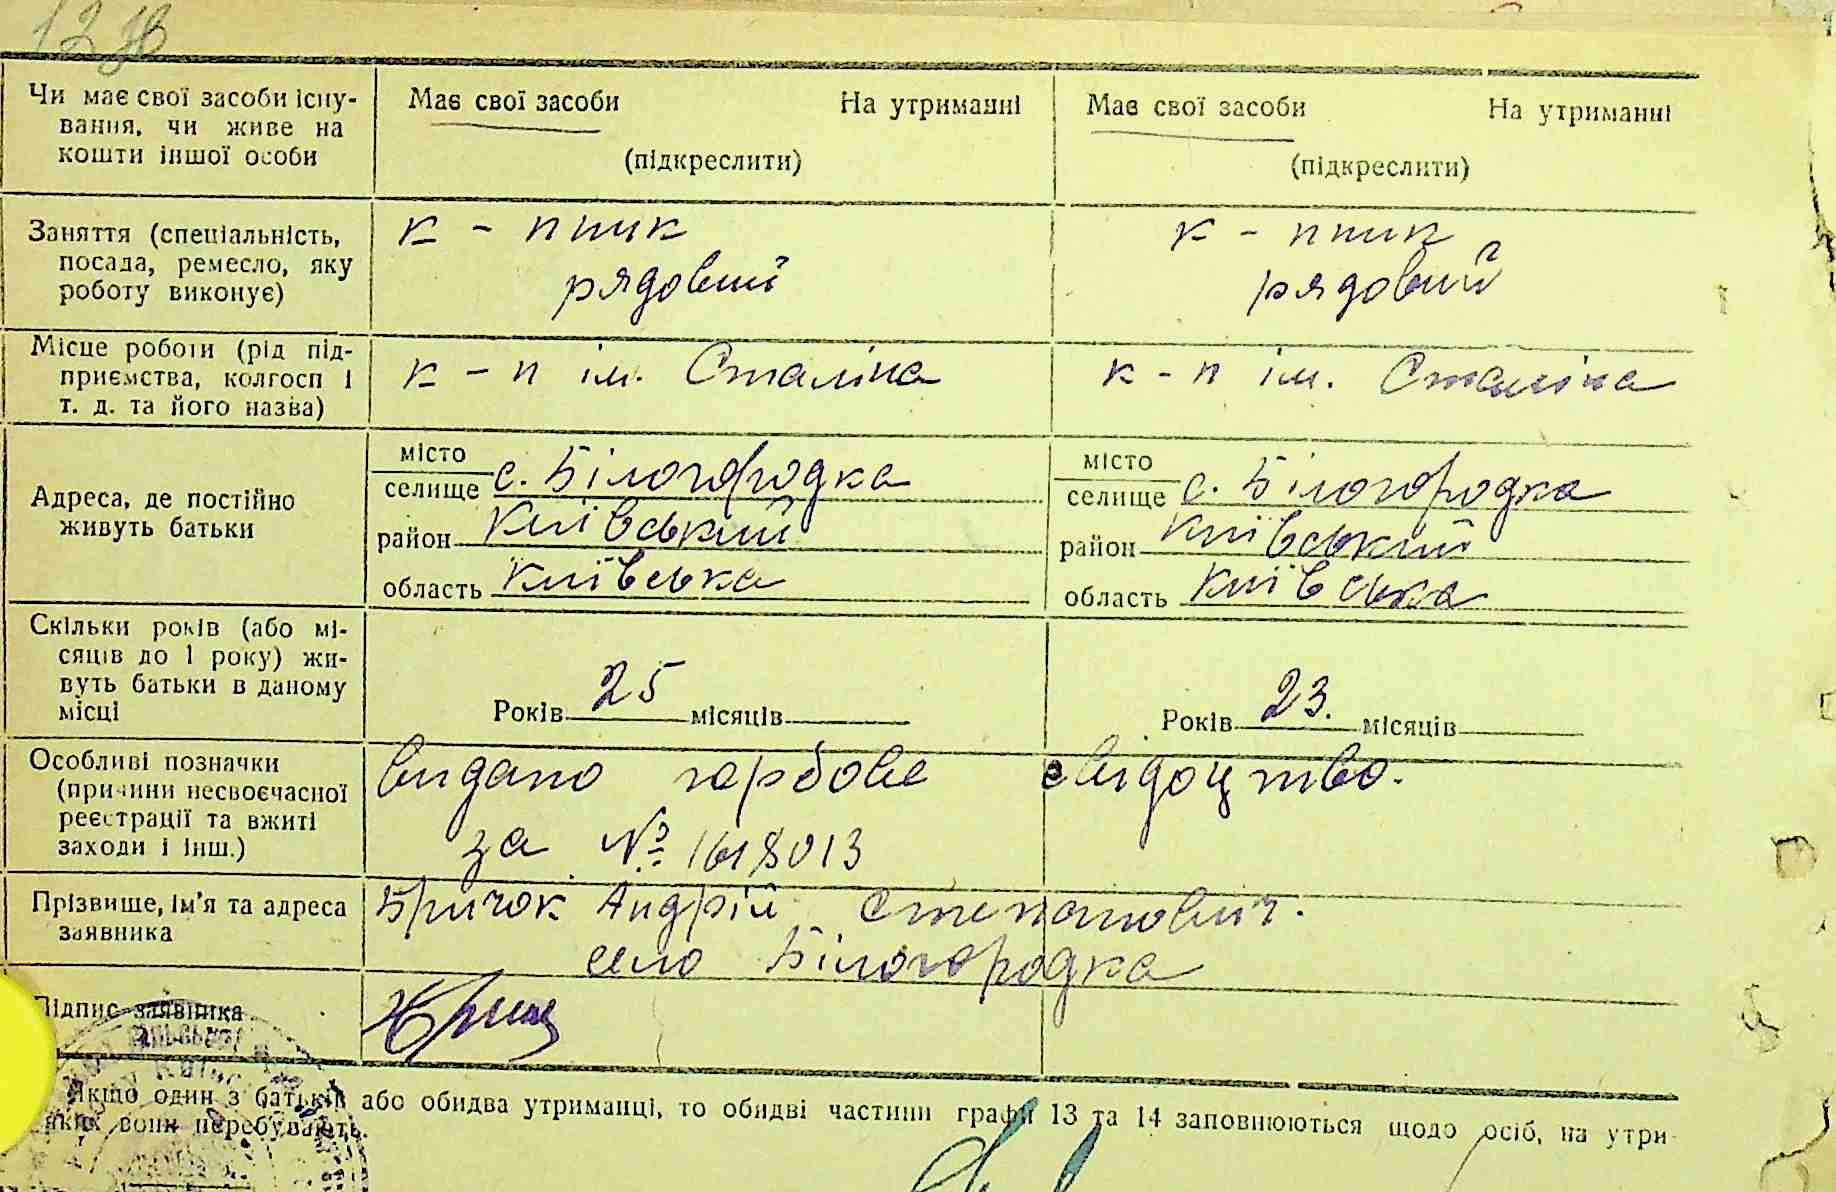 Чи має свої засоби існу-
вання, чи живе на
кошти іншої особи
Має свої засоби На утриманні
(підкреслити)
Має свої засоби На утриманні
(підкреслити)
Заняття (спеціальність,
посада, ремесло, яку
роботу виконує)
к - пник
рядовий
к - пник
рядовий
Місце роботи (рід під-
приємства, колгосп і
т. д. та його назва)
к - п ім. Сталіна
к - п ім. Сталіна
Адреса, де постійно
живуть батьки
місто
селище с. Білогородка
район Київський
область Київська
місто
селище с. Білогородка
район Київський
область Київська
Скільки років (або мі-
сяців до 1 року) жи-
вуть батьки в даному
місці
Років 25 місяців
Років 23. місяців
Особливі позначки
(причини несвоєчасної
реєстрації та вжиті
заходи і інш.)
видано гербове свідоцтво.
за № 1618013
Прізвище, ім'я та адреса
заявника
Бричок Андрій Степанович.
село Білогородка
Підпис заявника
Якщо один з батьків або обидва утриманці, то обидві частини графи 13 та 14 заповнюються щодо осіб, на утри-
яких вони перебувають.